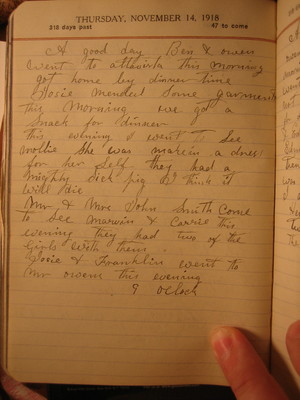 THURSDAY, NOVEMBER 14, 1918
318 days past 47 to come
A good day Ben & owens
went to attavista this morning
got home by dinner time
Rosie mended some garments
this morning we got a
snack for dinner
this evening I went to see
mollie She was makein a dress
for her self they had a
mighty sick pig I think it
will die
Mr & Mrs John Smith Come
to See Marvin & Carrie this
evening they had two of the
Girls With them
Rosie & Franklin went to
Mr owens this evening
9 oclock